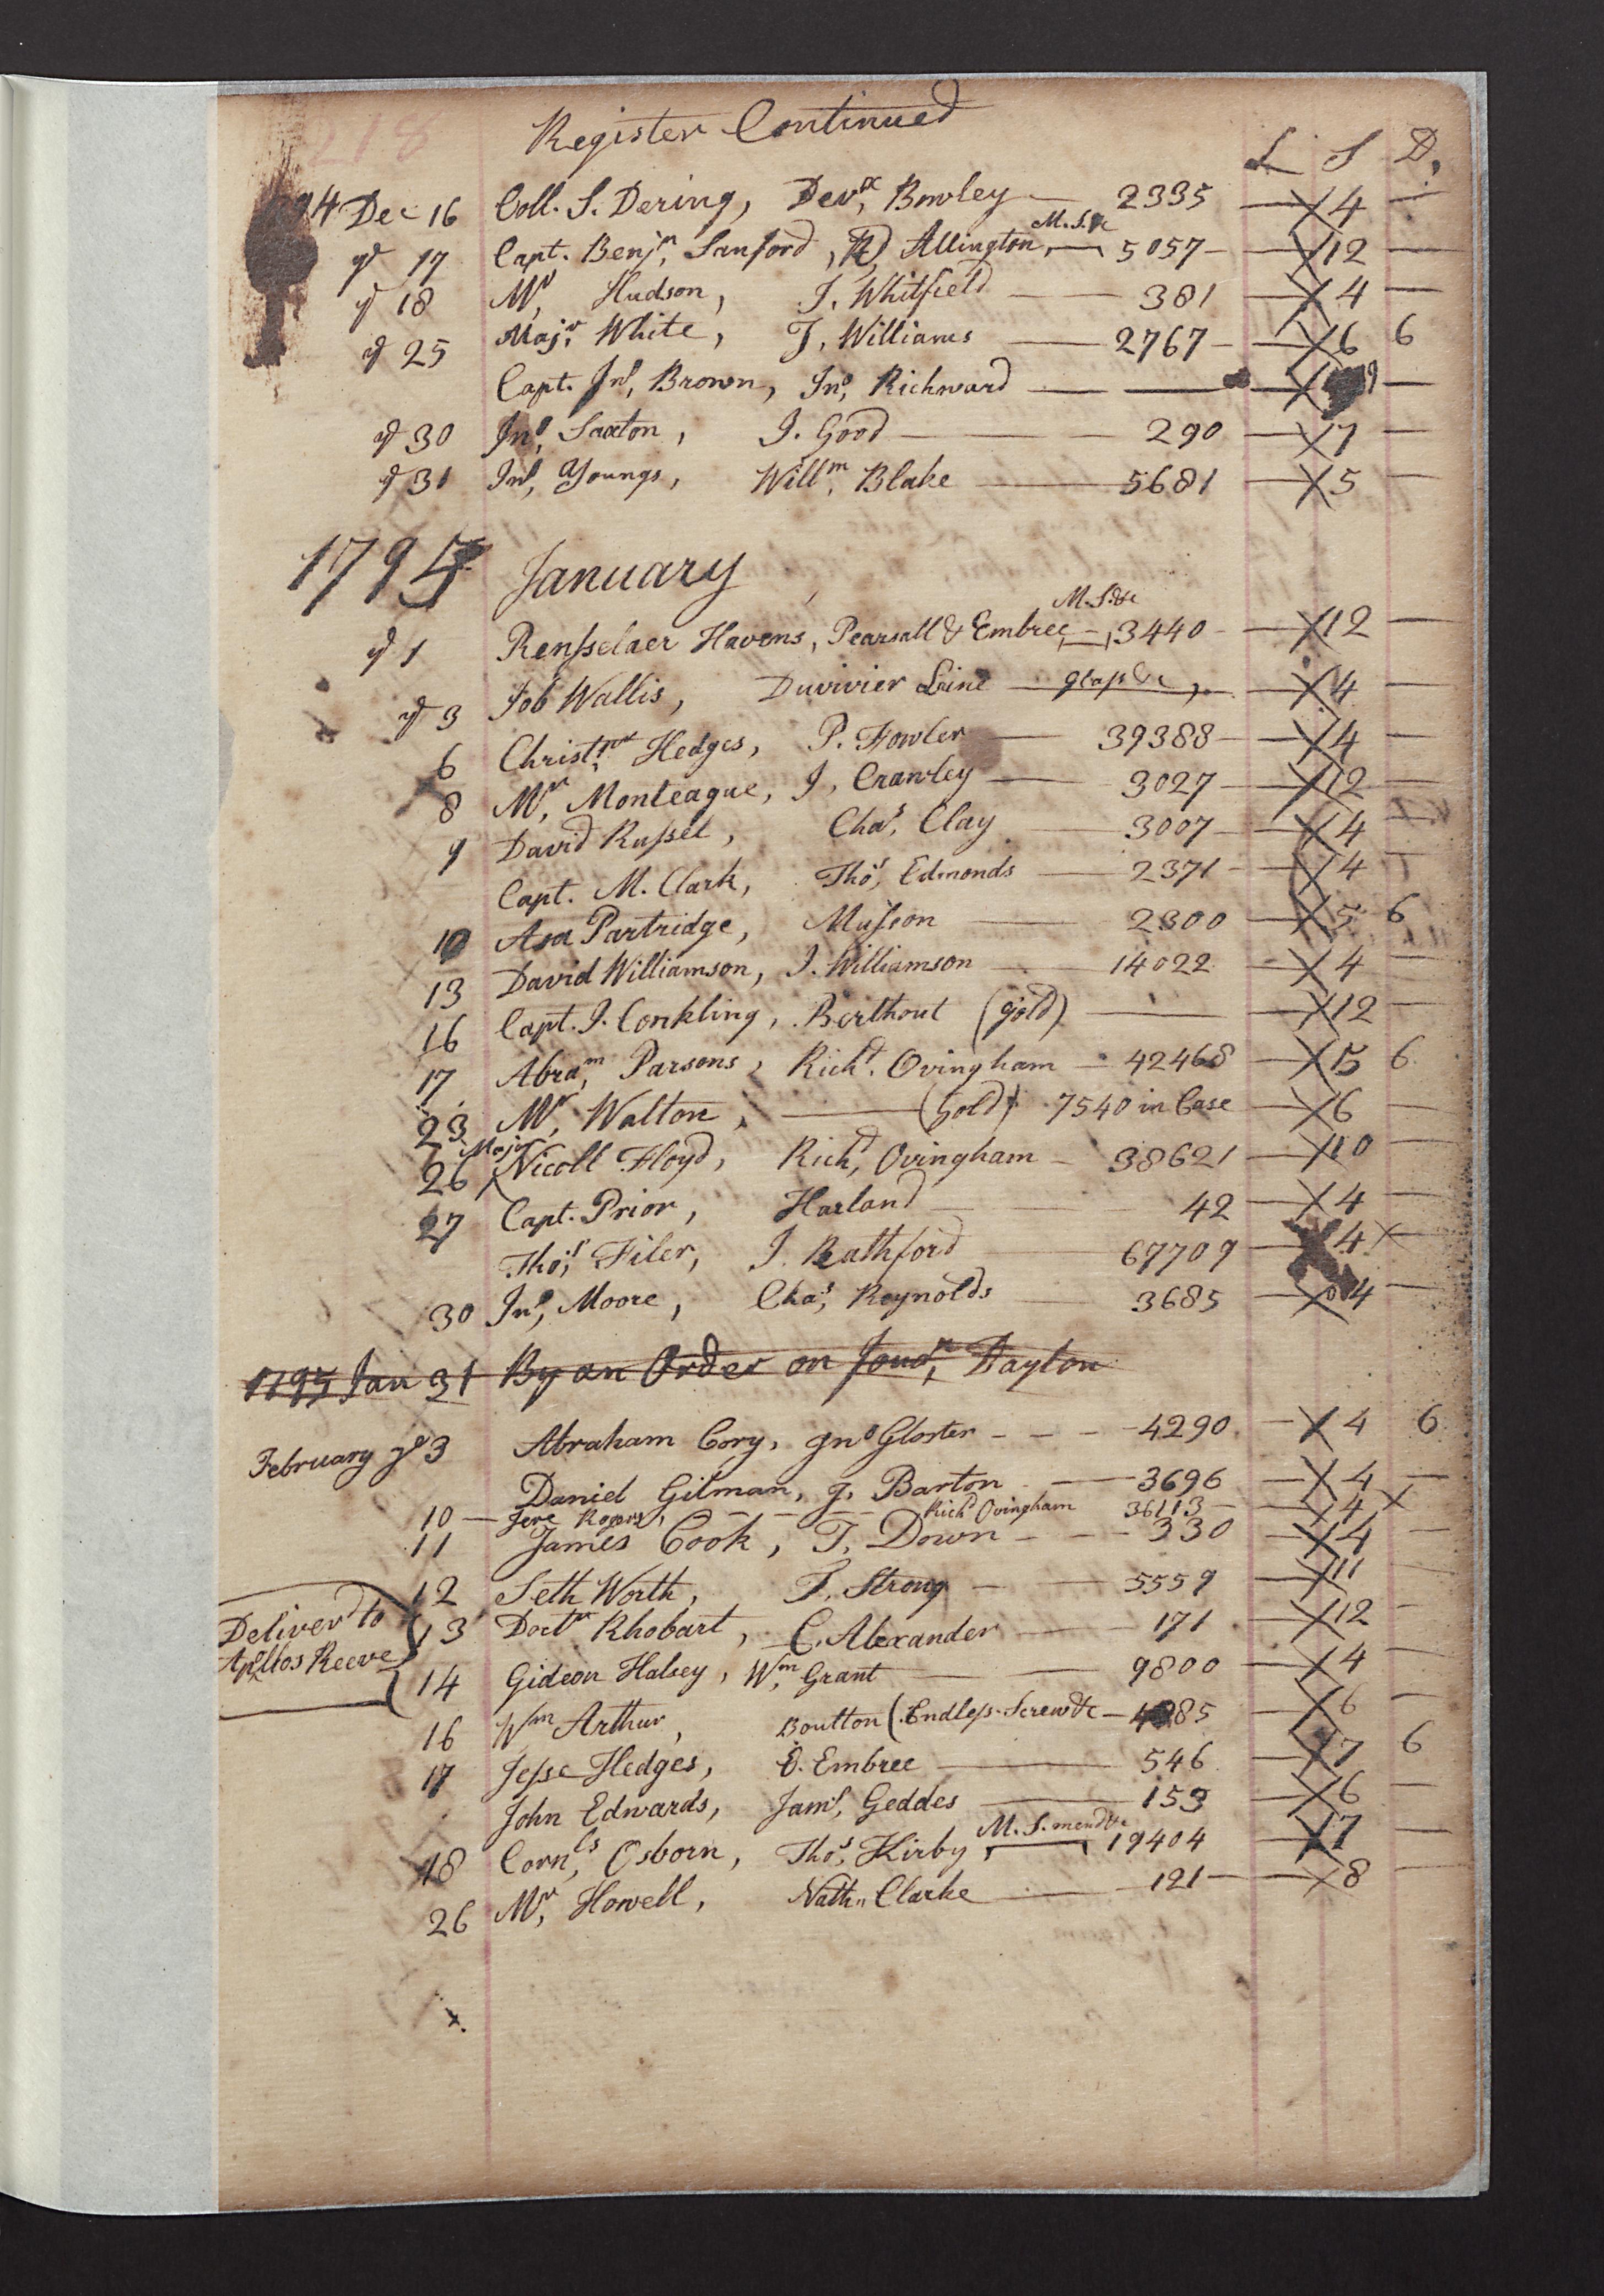 218
Register Continued
L S D,
94 Dec 16 Coll. S. Dering, Devx, Bowley — 2335 — X 4 —
yd 17 Capt. Benjn, Sanford, Rd, Allington, M.S.&c — 5057 — X 12 —
yd 18 Mr, Hudson, J. Whitfield — 381 — X 4 —
yd 25 Majr, White, J. Williams — 2767 — X 6 6
Capt. Jno, Brown, Jno, Richward — — X —
yd 30 Jno, Saxton, J. Good — 290 — X 7 —
yd 31 Jno, Youngs, Willm, Blake — 5681 — X 5 —
1795 January
yd 1 Rensselaer Havens, Pearsall & Embree, M.S.&c — 3440 — X 12 —
yd 3 Job Wallis, Duvivier Laine — glass &c, — X 4 —
6 Christpr Hedges, P. Fowler — 39388 — X 4 —
8 Mr, Monteague, J. Crawley — 3027 — X 12 —
9 David Russel, Chas, Clay — 3007 — X 4 —
Capt. M. Clark, Thos, Edmonds — 2371 — X 4 —
10 Asa Partridge, Musson — 2300 — X 5 6
13 David Williamson, J. Williamson — 14022 — X 4 —
16 Capt. J. Conkling, Berthout (gold) — — X 12 —
17 Abram, Parsons, Richd. Ovingham — 42468 — X 5 6
23 Mr, Walton, — (Gold) 7540 in Case — X 6 —
26 Major Nicoll Floyd, Richd, Ovingham — 38621 — X 10 —
27 Capt. Prior, Harland — 42 — X 4 —
Thos, Filer, J. Rathford 67709 — X 4 X
30 Jno, Moore, Chas, Reynolds — 3685 — X 4 —
1795 Jan 31 By an Order on Jonan, Dayton
February yd 3 Abraham Cory, Jno Gloster - - - 4290 — X 4 6
Daniel Gilman, J. Barton — 3696 — X 4 —
10 — Jere Rogers, - - - Richd Ovingham 36113 — X 4 X
11 James Cook, T. Down - - - 330 — X 4 —
12 Seth Worth, T. Strong — 5559 — X 11 —
Deliver'd to Apollos Reeve { 13 Doctr Rhobart, C. Alexander — 171 — X 12 —
14 Gideon Halsey, Wm, Grant — 9800 — X 4 —
16 Wm Arthur, Boutton (Endless-Screw &c — X 6 —
17 Jesse Hedges, E. Embree — 546 — X 7 6
John Edwards, Jams, Geddes — 153 — X 6 —
18 Cornls, Osborn, Thos, Kirby, M.S. mend &c — 19404 — X 7 —
26 Mr, Howell, Nathn Clarke — 121 — X 8 —
x.